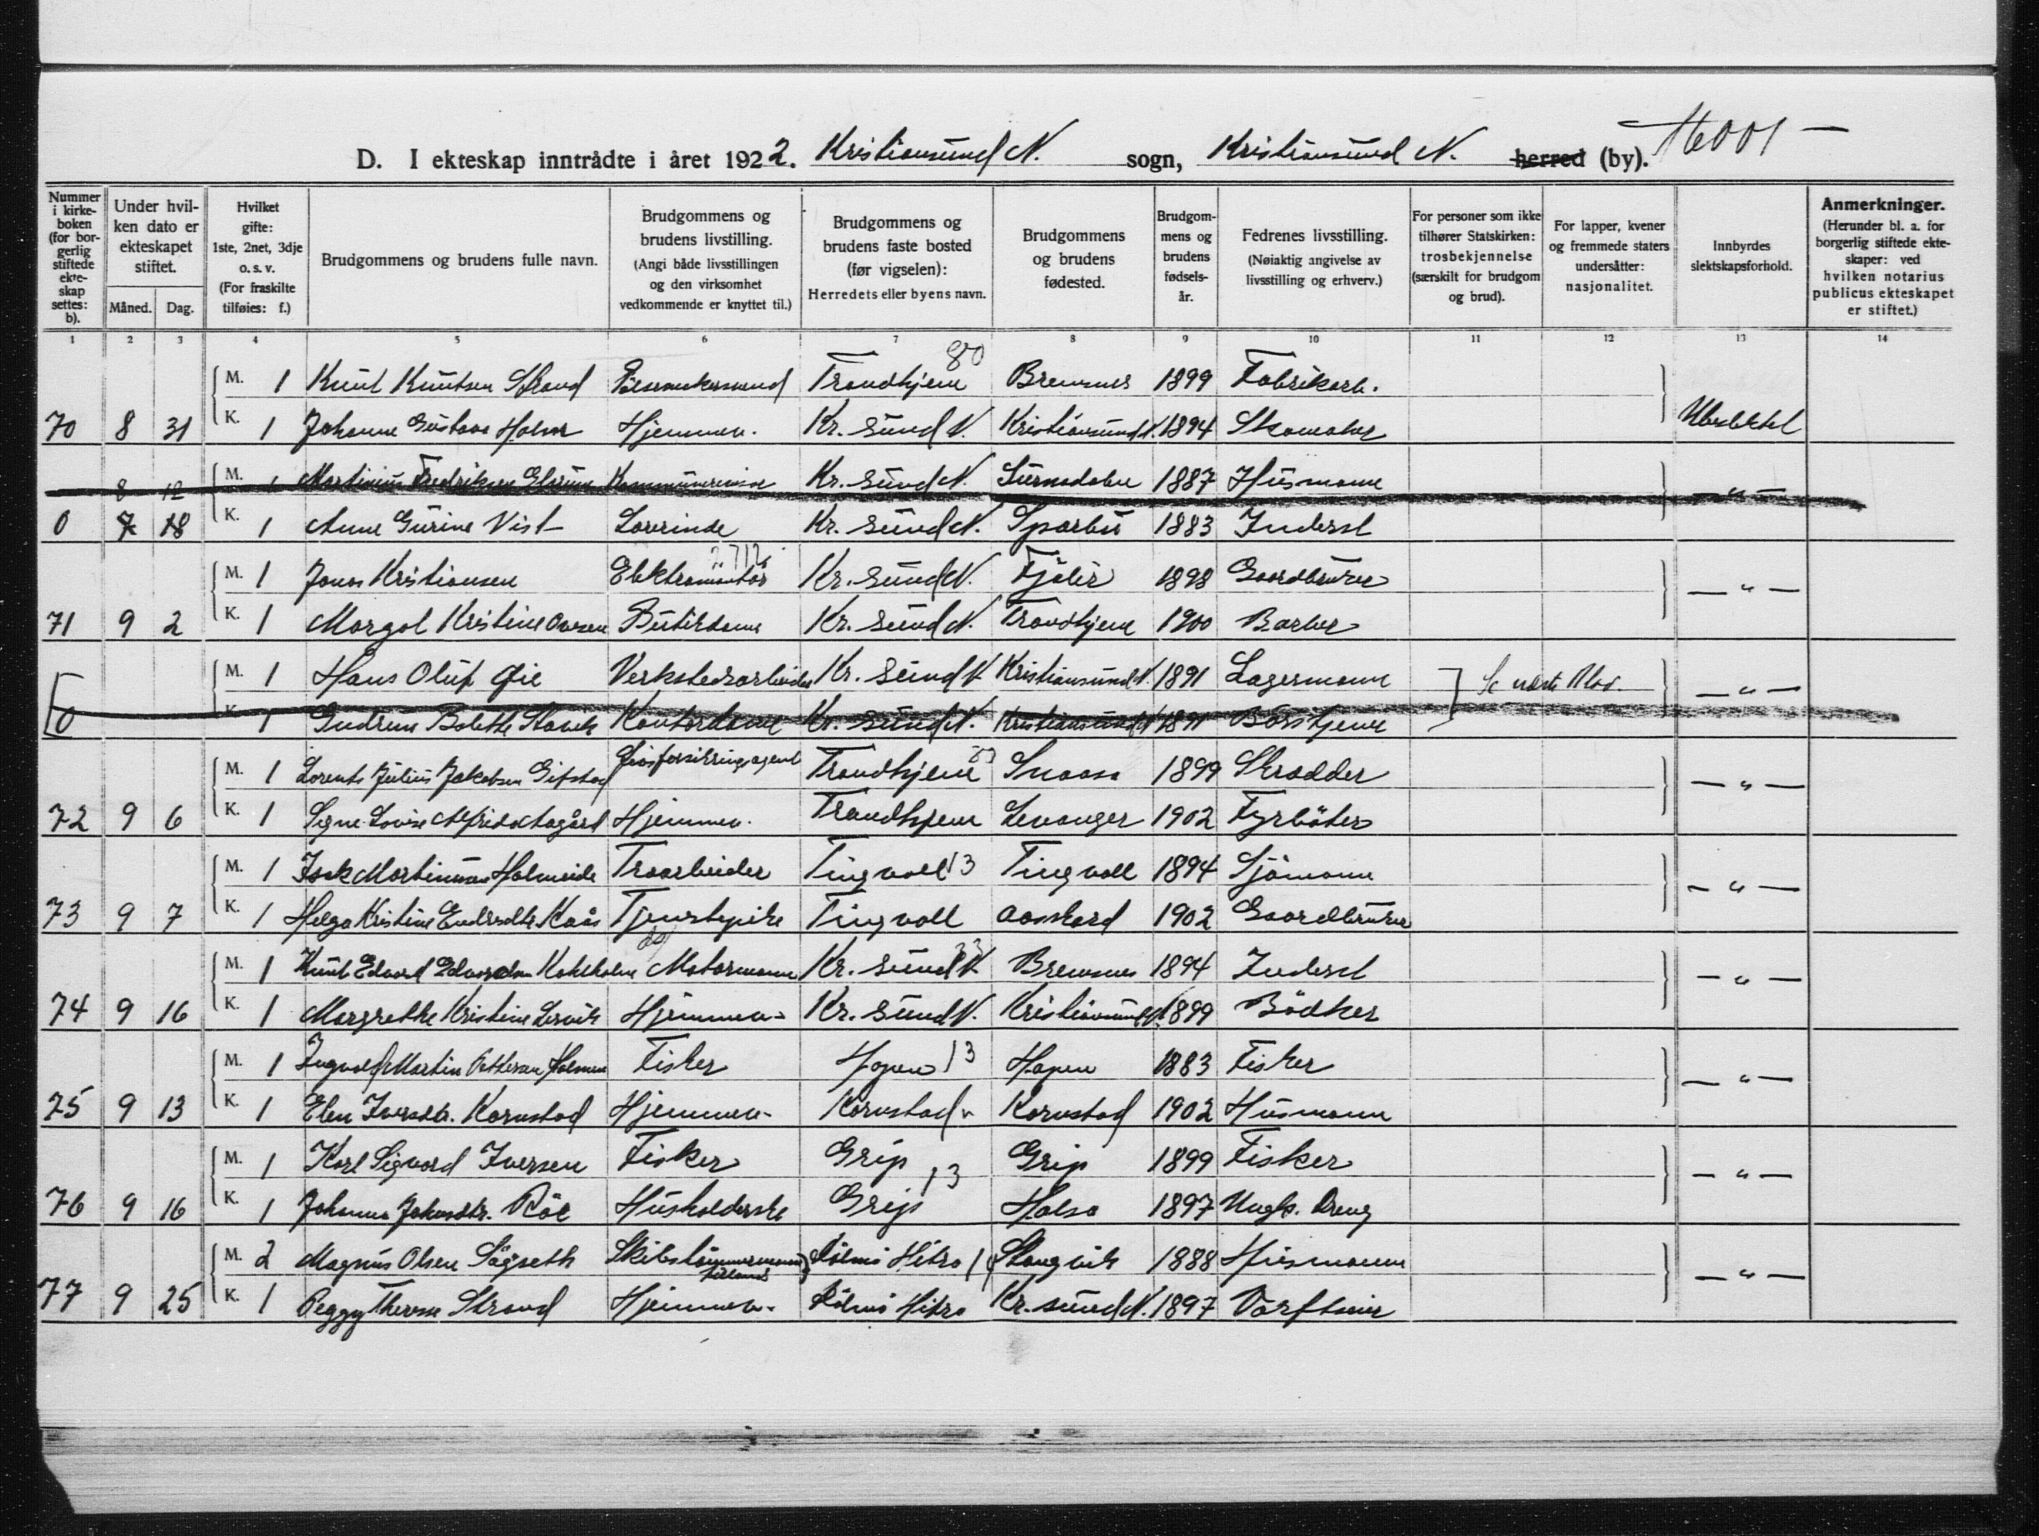 D. I ekteskap inntrådte i året 1922. Kristiansund N. sogn, Kristiansund N. herred (by). 16001 —
Nummer i kirke-boken (for bor-gerlig stiftede ekte-skap settes: b).
Under hvil-ken dato er ekteskapet stiftet.
Måned. Dag.
Hvilket gifte: 1ste, 2net, 3dje o. s. v. (For fraskilte tilføies: f.)
Brudgommens og brudens fulle navn.
Brudgommens og brudens livstilling. (Angi både livsstillingen og den virksomhet vedkommende er knyttet til.)
Brudgommens og brudens faste bosted (før vigselen): Herredets eller byens navn.
Brudgommens og brudens fødested.
Brudgom-mens og brudens fødsels-år.
Fedrenes livsstilling. (Nøiaktig angivelse av livsstilling og erhverv.)
For personer som ikke tilhører Statskirken: trosbekjennelse (særskilt for brudgom og brud).
For lapper, kvener og fremmede staters undersåtter: nasjonalitet.
Innbyrdes slektskapsforhold.
Anmerkninger. (Herunder bl. a. for borgerlig stiftede ekte-skaper: ved hvilken notarius publicus ekteskapet er stiftet.)
1 2 3 4 5 6 7 8 9 10 11 12 13 14
M. 1 Knut Knutsen Strand Trondhjem 80 Bremsnes 1899 Fabrikarb.
70 8 31 K. 1 Johanne Gustava Holm Hjemmen. Kr. sund N. Kristiansund N. 1894 Skomaker Ubeslektet
8 12 M. 1 Martinius Fredriksen Kr. sund N. Surnadalen 1887 Husmann — " —
0 7 18 K. 1 Anne Gurine Vist Lærerinde Kr. sund N. Sparbu 1883 Inderst
M. 1 Jonas Kristiansen Elektromontør Kr. sund N. Fjaler 1898 Gaardbruker — " —
71 9 2 K. 1 Margot Kristine Ovesen Butikdame Kr. sund N. Trondhjem 1900 Barber
M. 1 Hans Oluf Øie Verkstedsarbeider Kr. sund N. Kristiansund N. 1891 Lagermann Se næste Blad. — " —
0 K. 1 Gudrun Bolette Stavik Kontordame Kr. sund N. Kristiansund N. 1891
M. 1 Lorents Julius Jakobsen Gifstad Livsforsikringsagent Trondhjem Snaasa 1899 Skrædder — " —
72 9 6 K. 1 Signe Lovise Alfrida Aagård Hjemmen. Trondhjem Levanger 1902 Fyrbøter
M. 1 Isak Martinus Holmeide Træarbeider Tingvoll 13 Tingvoll 1894 Sjømann — " —
73 9 7 K. 1 Helga Kristine Endresdtr. Kaås Tjenstepike Tingvoll Aasskard 1902 Gaardbruker
M. 1 Knut Edvard Edvardsen Kokkholm Motormann Kr. sund N. Bremsnes 1894 Inderst — " —
74 9 16 K. 1 Margrethe Kristine Lervik Hjemmen. Kr. sund N. Kristiansund N. 1899 Bødker
M. 1 Ingvald Martin Pettersen Holmen Fisker Hopen 13 Hopen 1883 Fisker — " —
75 9 13 K. 1 Elen Iversdtr. Kornstad Hjemmen. Kornstad Kornstad 1902 Husmann
M. 1 Karl Sigvard Iversen Fisker Grip 13 Grip 1899 Fisker — " —
76 9 16 K. 1 Johanna Johnsdtr. Røe Husholderske Grip Halsa 1897 Ungk. Dreng
M. 2 Magnus Olsen Sögseth Skibstømmermann Hitra Stangvik 1888 Husmann — " —
77 9 25 K. 1 Peggy Therese Strand Hjemmen. Hitra Kr. sund N. 1897 Værftseier